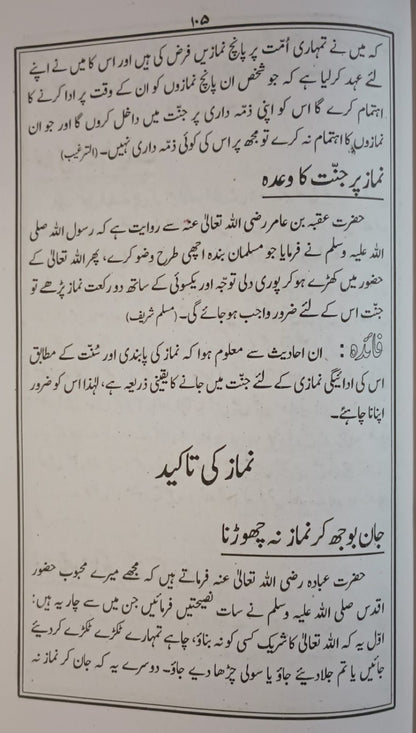 ۱۰۵
کہ میں نے تمہاری اُمّت پر پانچ نمازیں فرض کی ہیں اور اس کا میں نے اپنے
لئے عہد کرلیا ہے کہ جو شخص ان پانچ نمازوں کو ان کے وقت پر ادا کرنے کا
اہتمام کرے گا اس کو اپنی ذمّہ داری پر جنّت میں داخل کروں گا اور جو ان
نمازوں کا اہتمام نہ کرے تو مجھ پر اس کی کوئی ذمّہ داری نہیں۔ (الترغیب)
نماز پر جنّت کا وعدہ
حضرت عقبہ بن عامر رضی اللہ تعالیٰ عنہ سے روایت ہے کہ رسول اللہ صلی
اللہ علیہ وسلم نے فرمایا جو مسلمان بندہ اچھی طرح وضو کرے، پھر اللہ تعالیٰ کے
حضور میں کھڑے ہوکر پوری دلی توجّہ اور یکسوئی کے ساتھ دو رکعت نماز پڑھے تو
جنّت اس کے لئے ضرور واجب ہوجائے گی۔ (مسلم شریف)
فائدہ: ان احادیث سے معلوم ہوا کہ نماز کی پابندی اور سُنّت کے مطابق
اس کی ادائیگی نمازی کے لئے جنّت میں جانے کا یقینی ذریعہ ہے، لہٰذا اس کو ضرور
اپنانا چاہئے۔
نماز کی تاکید
جان بوجھ کر نماز نہ چھوڑنا
حضرت عبادہ رضی اللہ تعالیٰ عنہ فرماتے ہیں کہ مجھے میرے محبوب حضور
اقدس صلی اللہ علیہ وسلم نے سات نصیحتیں فرمائیں جن میں سے چار یہ ہیں:
اوّل یہ کہ اللہ تعالیٰ کا شریک کسی کو نہ بناؤ، چاہے تمہارے ٹکڑے ٹکڑے کردیئے
جائیں یا تم جلا دیئے جاؤ یا سولی چڑھا دیے جاؤ۔ دوسرے یہ کہ جان کر نماز نہ